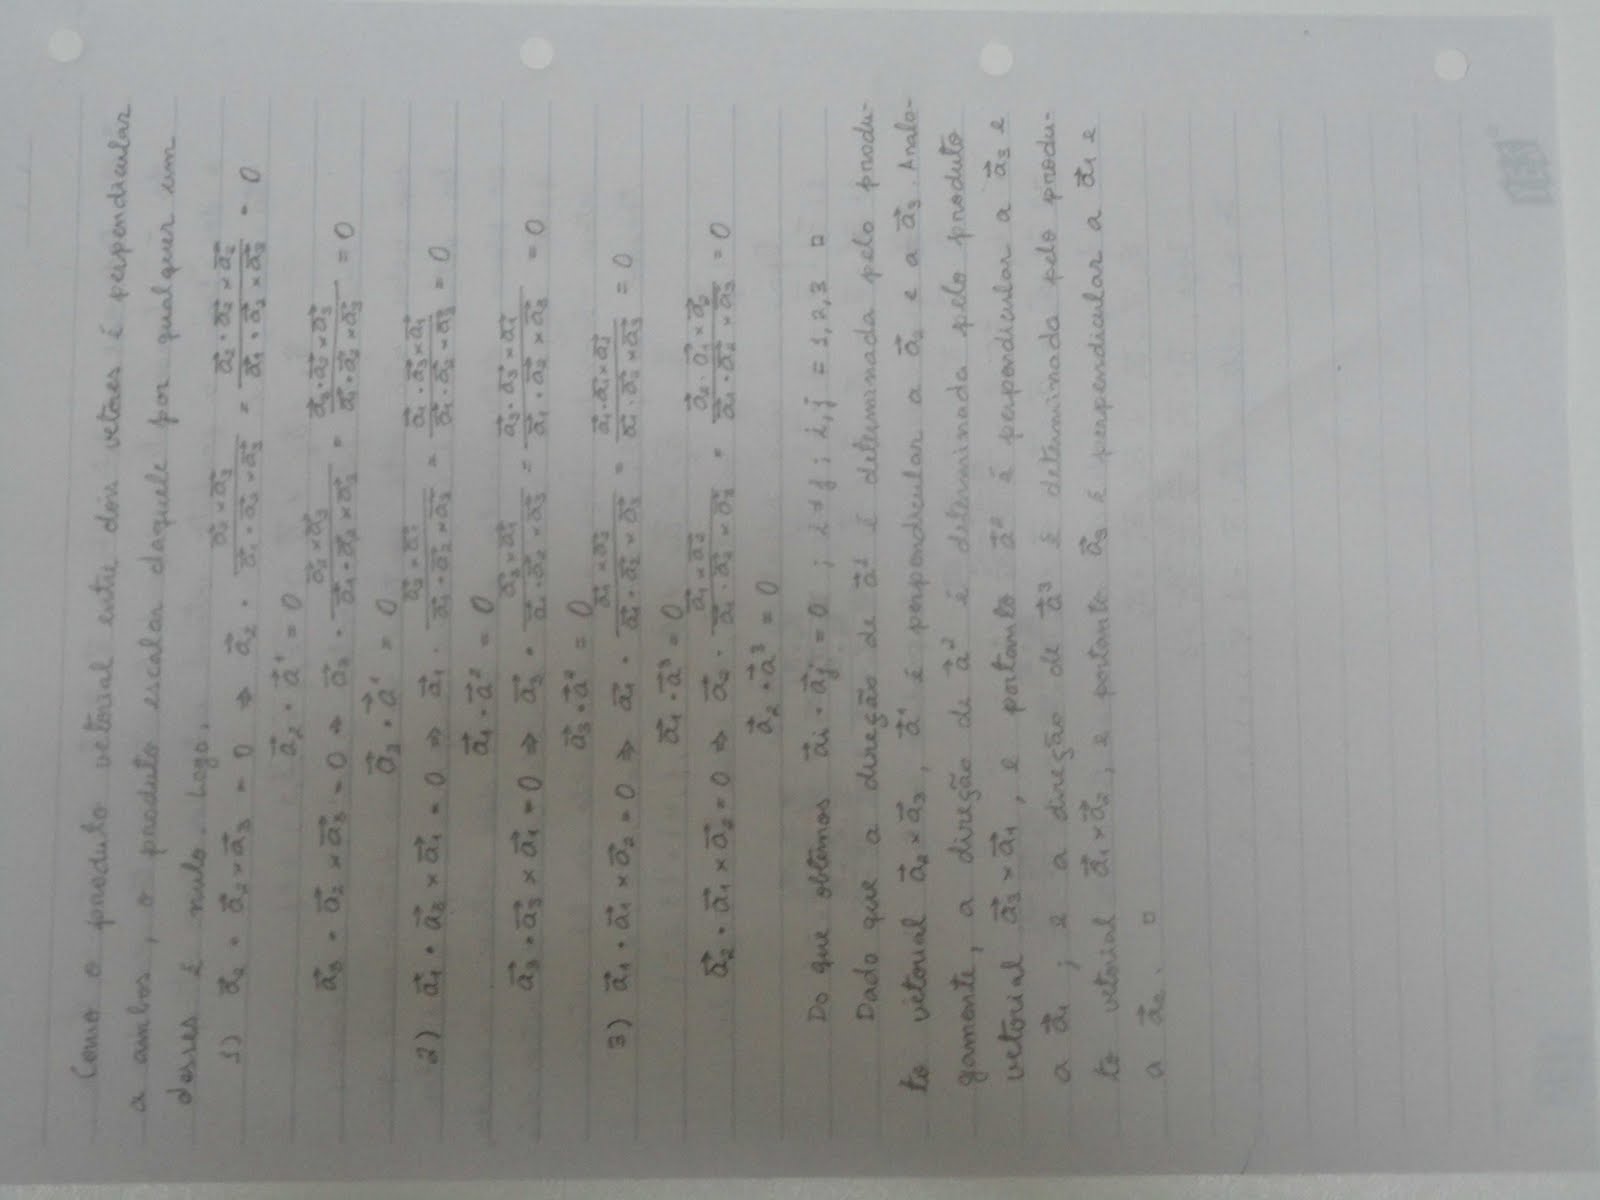 Como o produto vetorial entre dois vetores é perpendicular
a ambos, o produto escalar daquele por qualquer um
desses é nulo. Logo,
1) a⃗₂ · a⃗₂ × a⃗₃ = 0 ⇒ a⃗₂ · (a⃗₂ × a⃗₃)/(a⃗₁ · a⃗₂ × a⃗₃) = (a⃗₂ · a⃗₂ × a⃗₃)/(a⃗₁ · a⃗₂ × a⃗₃) = 0
a⃗₂ · a⃗¹ = 0
a⃗₃ · a⃗₂ × a⃗₃ = 0 ⇒ a⃗₃ · (a⃗₂ × a⃗₃)/(a⃗₁ · a⃗₂ × a⃗₃) = (a⃗₃ · a⃗₂ × a⃗₃)/(a⃗₁ · a⃗₂ × a⃗₃) = 0
a⃗₃ · a⃗¹ = 0
2) a⃗₁ · a⃗₃ × a⃗₁ = 0 ⇒ a⃗₁ · (a⃗₃ × a⃗₁)/(a⃗₁ · a⃗₂ × a⃗₃) = (a⃗₁ · a⃗₃ × a⃗₁)/(a⃗₁ · a⃗₂ × a⃗₃) = 0
a⃗₁ · a⃗² = 0
a⃗₃ · a⃗₃ × a⃗₁ = 0 ⇒ a⃗₃ · (a⃗₃ × a⃗₁)/(a⃗₁ · a⃗₂ × a⃗₃) = (a⃗₃ · a⃗₃ × a⃗₁)/(a⃗₁ · a⃗₂ × a⃗₃) = 0
a⃗₃ · a⃗² = 0
3) a⃗₁ · a⃗₁ × a⃗₂ = 0 ⇒ a⃗₁ · (a⃗₁ × a⃗₂)/(a⃗₁ · a⃗₂ × a⃗₃) = (a⃗₁ · a⃗₁ × a⃗₂)/(a⃗₁ · a⃗₂ × a⃗₃) = 0
a⃗₁ · a⃗³ = 0
a⃗₂ · a⃗₁ × a⃗₂ = 0 ⇒ a⃗₂ · (a⃗₁ × a⃗₂)/(a⃗₁ · a⃗₂ × a⃗₃) = (a⃗₂ · a⃗₁ × a⃗₂)/(a⃗₁ · a⃗₂ × a⃗₃) = 0
a⃗₂ · a⃗³ = 0
Do que obtemos a⃗ᵢ · a⃗ⱼ = 0 ; i ≠ j ; i, j = 1, 2, 3 □
Dado que a direção de a⃗¹ é determinada pelo produ-
to vetorial a⃗₂ × a⃗₃, a⃗¹ é perpendicular a a⃗₂ e a a⃗₃. Analo-
gamente, a direção de a⃗² é determinada pelo produto
vetorial a⃗₃ × a⃗₁, e portanto a⃗² é perpendicular a a⃗₃ e
a a⃗₁ ; e a direção de a⃗³ é determinada pelo produ-
to vetorial a⃗₁ × a⃗₂, e portanto a⃗₃ é perpendicular a a⃗₁ e
a a⃗₂. □